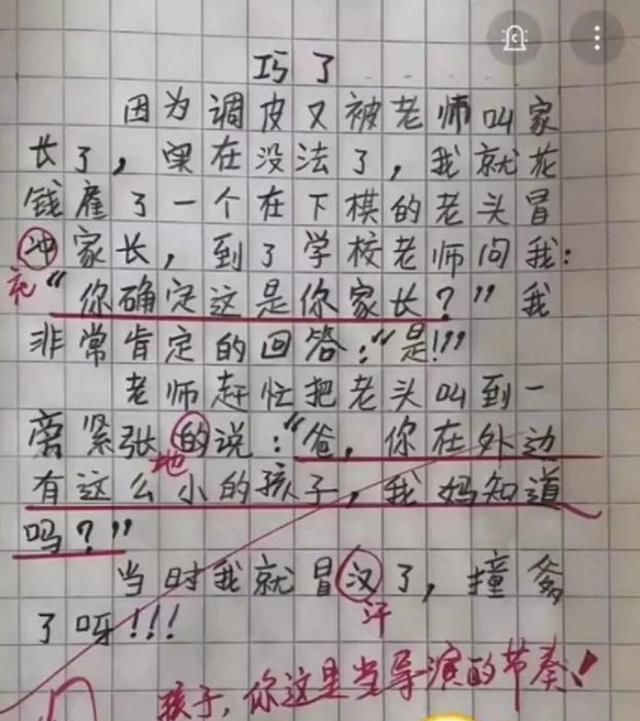 巧了
因为调皮又被老师叫家
长了，实在没法了，我就花
钱雇了一个在下棋的老头冒
冲家长，到了学校老师问我：
充
“你确定这是你家长？”我
非常肯定的回答：“是!!”
老师赶忙把老头叫到一
旁紧张的说：“爸，你在外边
地
有这么小的孩子，我妈知道
吗？”
当时我就冒汉了，撞爹
汗
了呀!!!
孩子，你这是当导演的节奏!